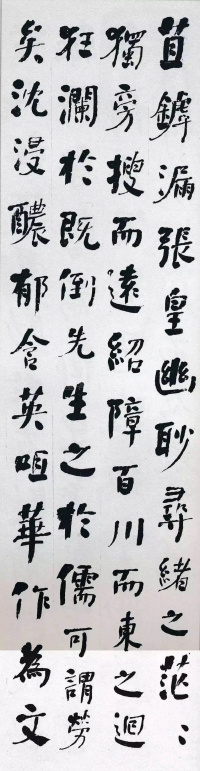 苴罅漏張皇幽眇尋緒之茫〻
獨旁搜而遠紹障百川而東之迴
狂瀾於既倒先生之於儒可謂勞
矣沈浸醲郁含英咀華作為文